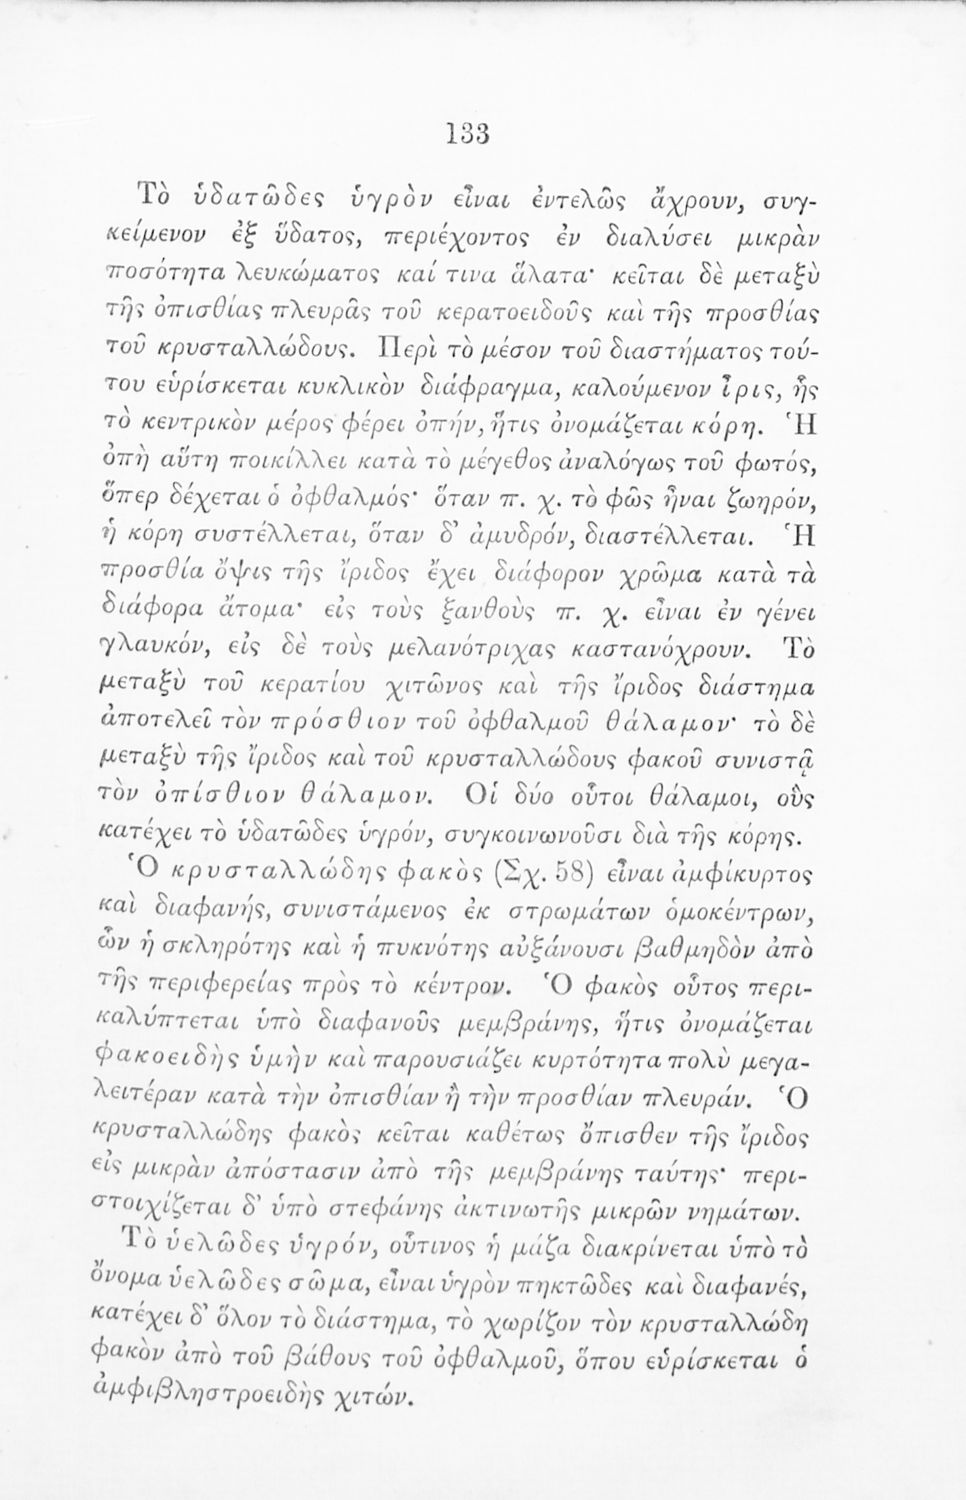 133
Τὸ ὑδατῶδες ὑγρὸν εἶναι ἐντελῶς ἄχρουν, συγ-
κείμενον ἐξ ὕδατος, περιέχοντος ἐν διαλύσει μικρὰν
ποσότητα λευκώματος καί τινα ἅλατα· κεῖται δὲ μεταξὺ
τῆς ὀπισθίας πλευρᾶς τοῦ κερατοειδοῦς καὶ τῆς προσθίας
τοῦ κρυσταλλώδους. Περὶ τὸ μέσον τοῦ διαστήματος τού-
του εὑρίσκεται κυκλικὸν διάφραγμα, καλούμενον ἶρις, ἧς
τὸ κεντρικὸν μέρος φέρει ὀπήν, ἥτις ὀνομάζεται κόρη. Ἡ
ὀπὴ αὕτη ποικίλλει κατὰ τὸ μέγεθος ἀναλόγως τοῦ φωτός,
ὅπερ δέχεται ὁ ὀφθαλμός· ὅταν π. χ. τὸ φῶς ἦναι ζωηρόν,
ἡ κόρη συστέλλεται, ὅταν δ’ ἀμυδρόν, διαστέλλεται. Ἡ
προσθία ὄψις τῆς ἴριδος ἔχει διάφορον χρῶμα κατὰ τὰ
διάφορα ἄτομα· εἰς τοὺς ξανθοὺς π. χ. εἶναι ἐν γένει
γλαυκόν, εἰς δὲ τοὺς μελανότριχας καστανόχρουν. Τὸ
μεταξὺ τοῦ κερατίου χιτῶνος καὶ τῆς ἴριδος διάστημα
ἀποτελεῖ τὸν πρόσθιον τοῦ ὀφθαλμοῦ θάλαμον· τὸ δὲ
μεταξὺ τῆς ἴριδος καὶ τοῦ κρυσταλλώδους φακοῦ συνιστᾷ
τὸν ὀπίσθιον θάλαμον. Οἱ δύο οὗτοι θάλαμοι, οὓς
κατέχει τὸ ὑδατῶδες ὑγρόν, συγκοινωνοῦσι διὰ τῆς κόρης.
Ὁ κρυσταλλώδης φακὸς (Σχ. 58) εἶναι ἀμφίκυρτος
καὶ διαφανής, συνιστάμενος ἐκ στρωμάτων ὁμοκέντρων,
ὧν ἡ σκληρότης καὶ ἡ πυκνότης αὐξάνουσι βαθμηδὸν ἀπὸ
τῆς περιφερείας πρὸς τὸ κέντρον. Ὁ φακὸς οὗτος περι-
καλύπτεται ὑπὸ διαφανοῦς μεμβράνης, ἥτις ὀνομάζεται
φακοειδὴς ὑμὴν καὶ παρουσιάζει κυρτότητα πολὺ μεγα-
λειτέραν κατὰ τὴν ὀπισθίαν ἢ τὴν προσθίαν πλευράν. Ὁ
κρυσταλλώδης φακὸς κεῖται καθέτως ὄπισθεν τῆς ἴριδος
εἰς μικρὰν ἀπόστασιν ἀπὸ τῆς μεμβράνης ταύτης· περι-
στοιχίζεται δ’ ὑπὸ στεφάνης ἀκτινωτῆς μικρῶν νημάτων.
Τὸ ὑελῶδες ὑγρόν, οὗτινος ἡ μάζα διακρίνεται ὑπὸ τὸ
ὄνομα ὑελῶδες σῶμα, εἶναι ὑγρὸν πηκτῶδες καὶ διαφανές,
κατέχει δ’ ὅλον τὸ διάστημα, τὸ χωρίζον τὸν κρυσταλλώδη
φακὸν ἀπὸ τοῦ βάθους τοῦ ὀφθαλμοῦ, ὅπου εὑρίσκεται ὁ
ἀμφιβληστροειδὴς χιτών.